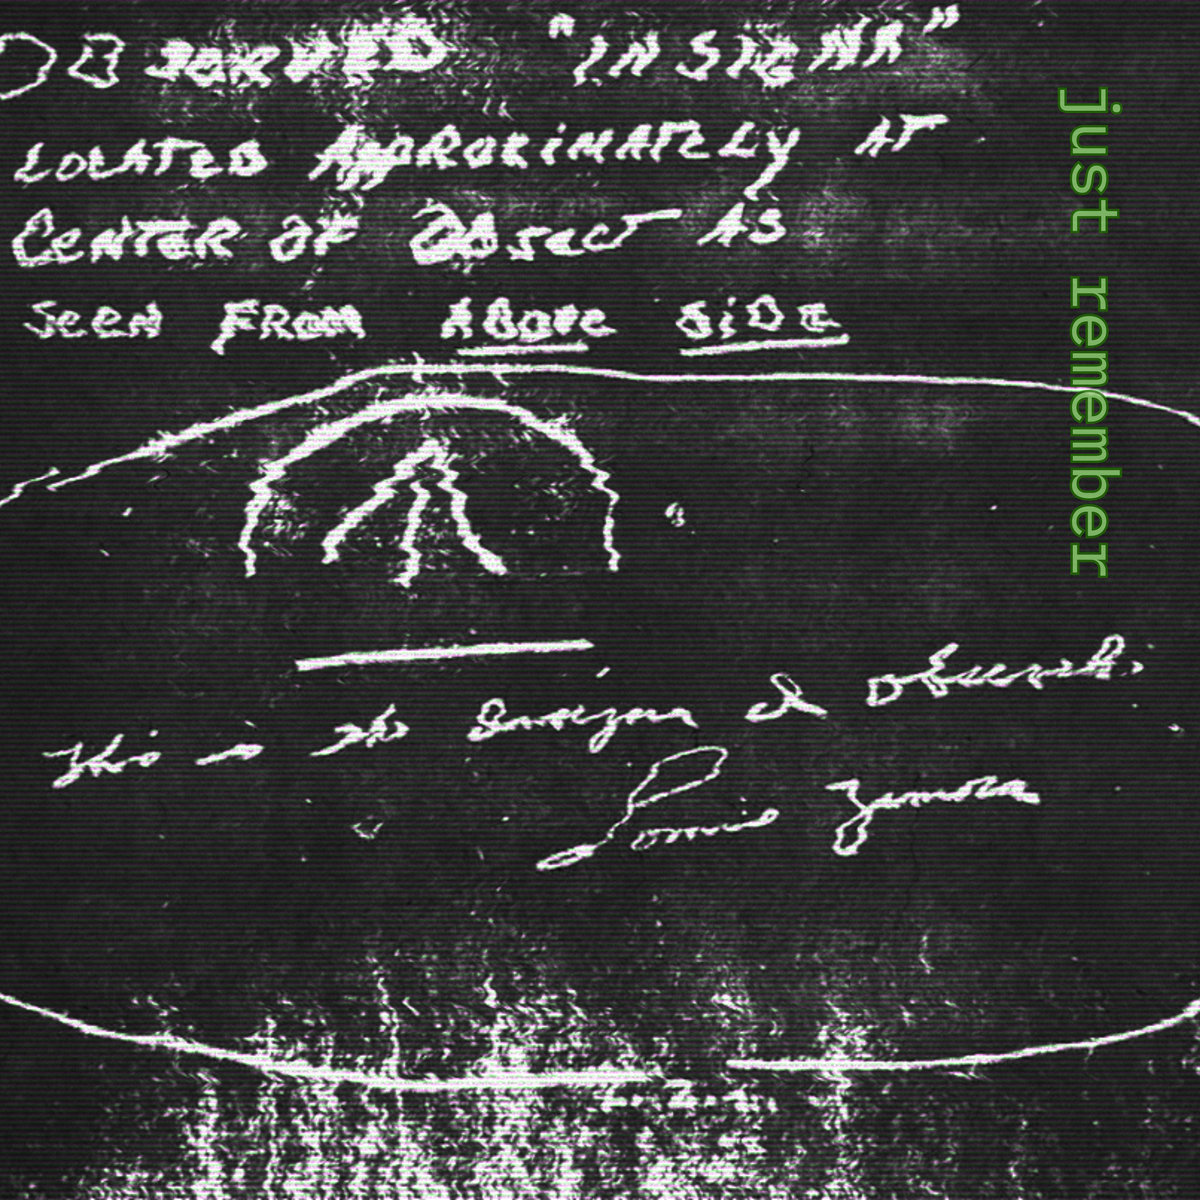 OBSERVED "INSIGNA"
LOCATED APPROXIMATELY AT
CENTER OF OBJECT AS
SEEN FROM ABOVE SIDE
This is the Insigna I observed.
Lonnie Zamora
L.Z.
just remember